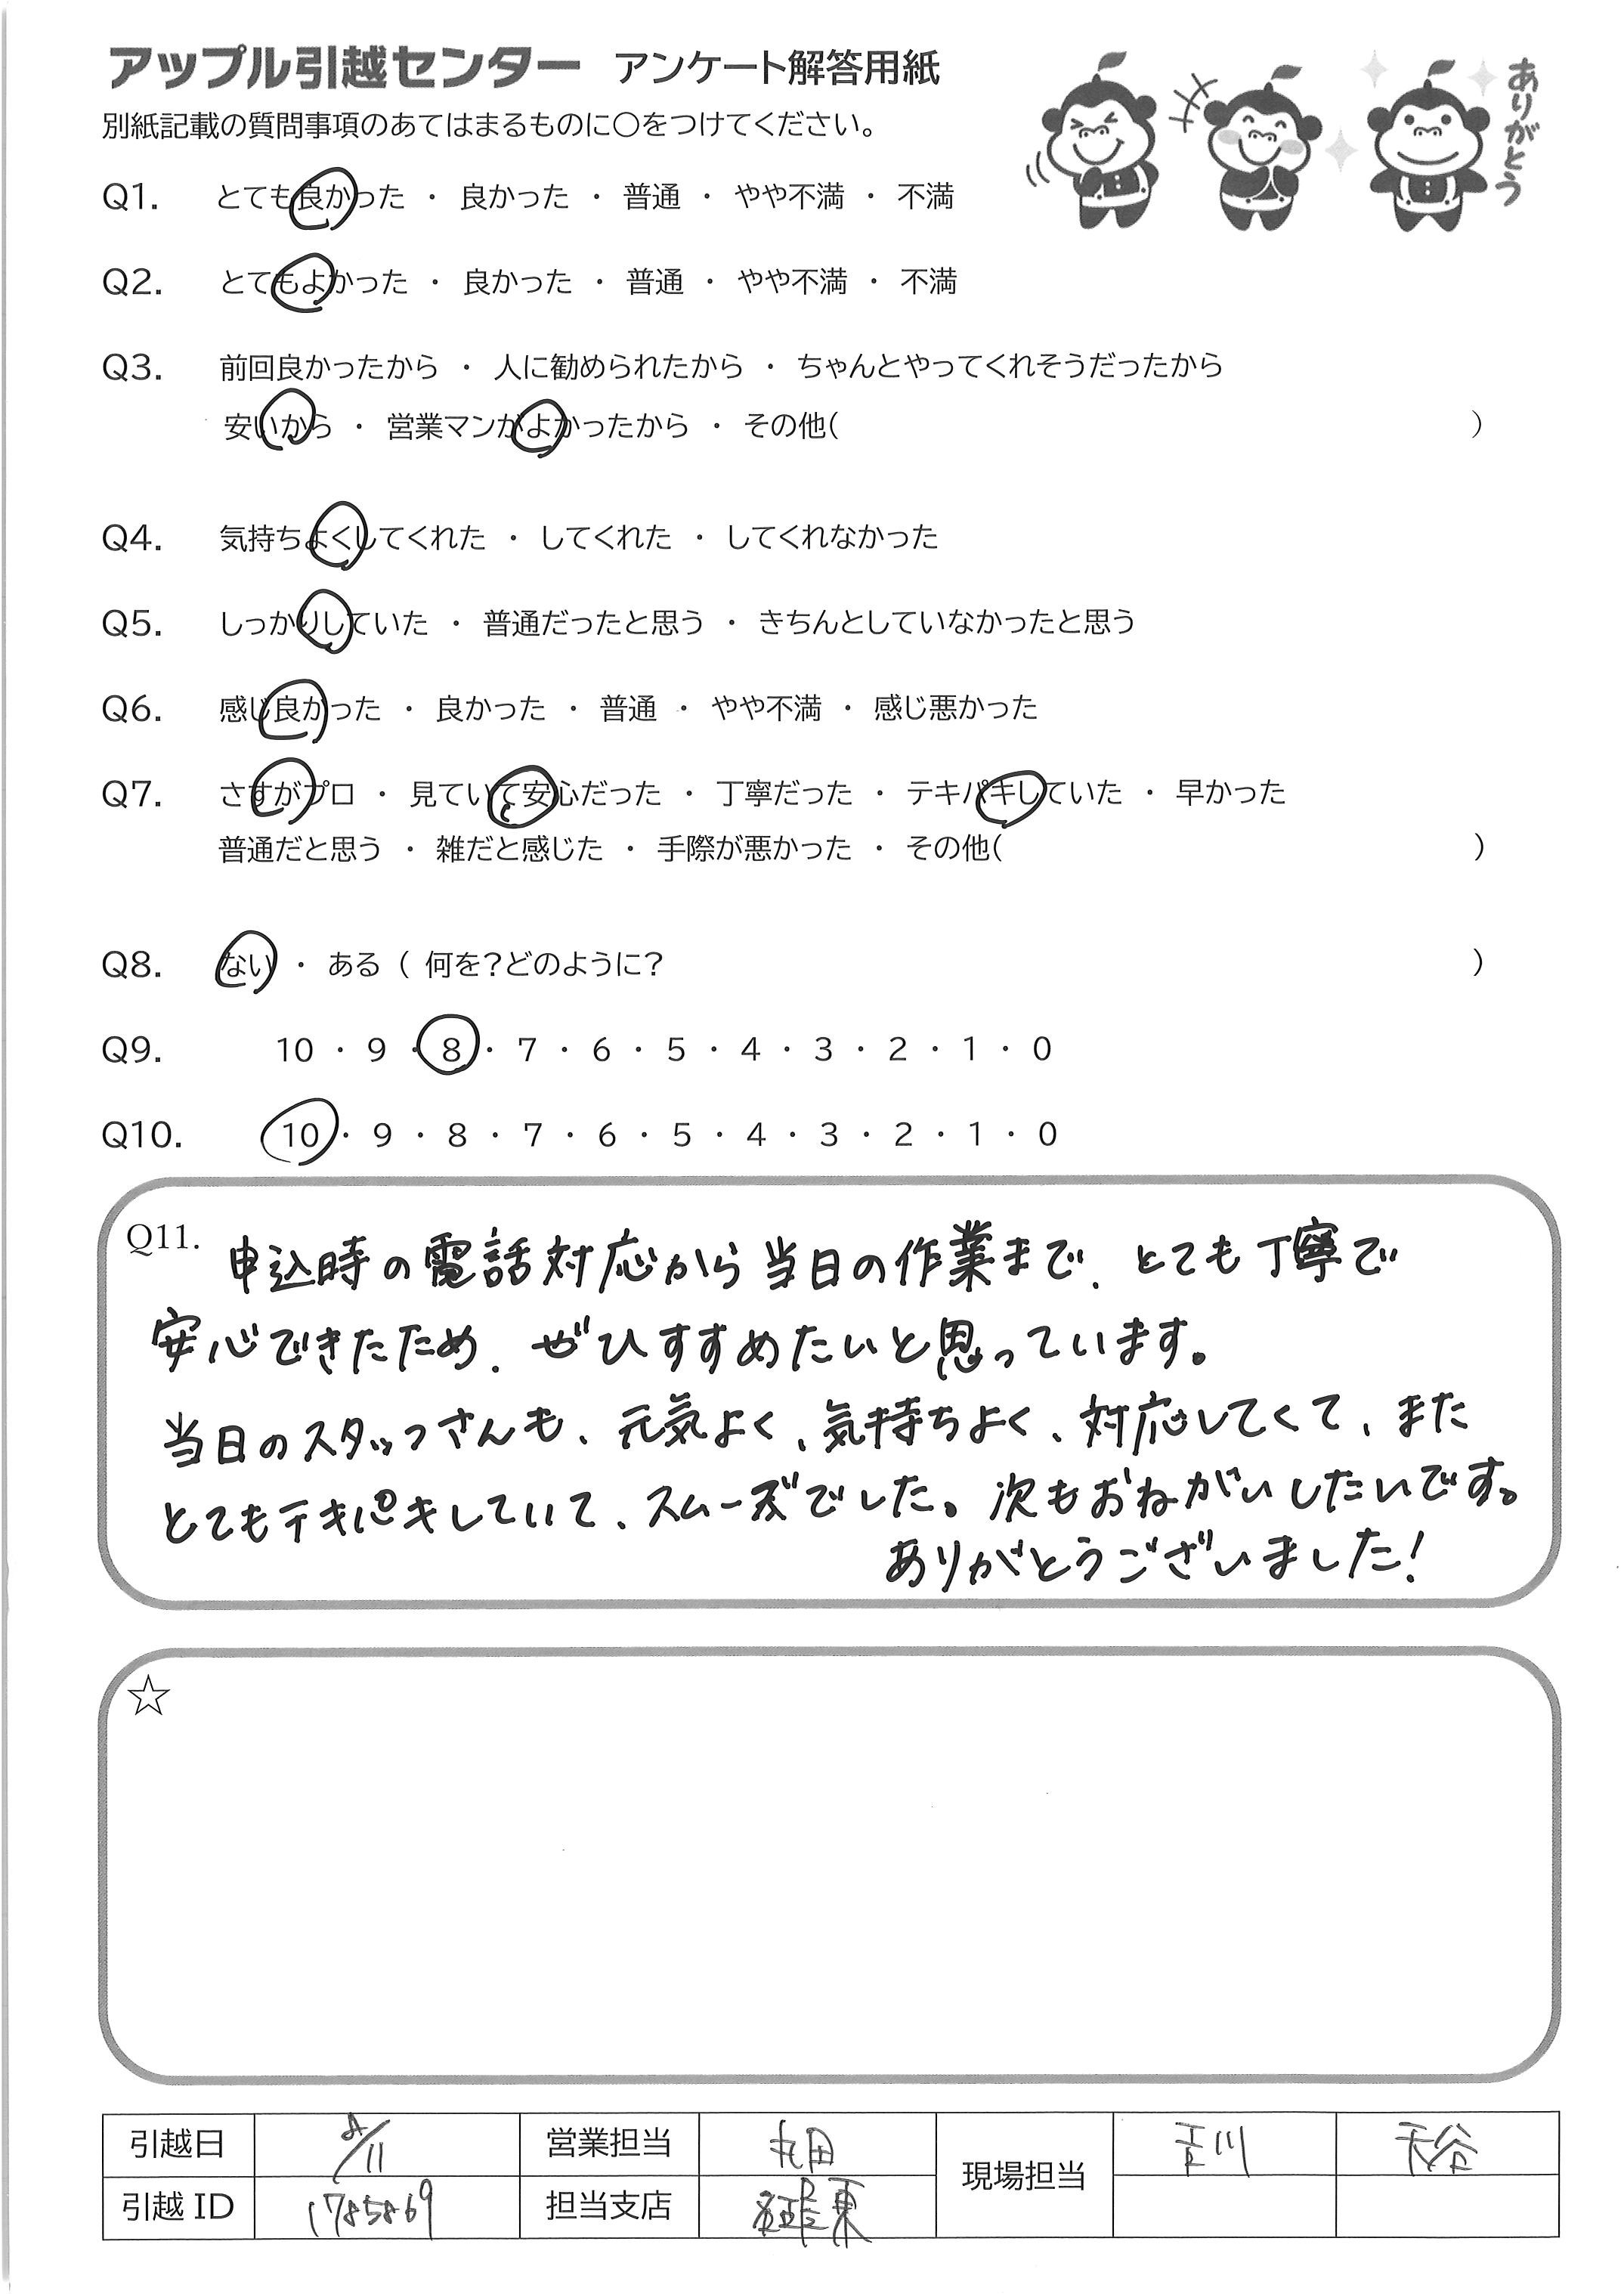 アップル引越センター アンケート解答用紙
ありがとう
別紙記載の質問事項のあてはまるものに○をつけてください。
Q1. とても良かった ・ 良かった ・ 普通 ・ やや不満 ・ 不満
Q2. とてもよかった ・ 良かった ・ 普通 ・ やや不満 ・ 不満
Q3. 前回良かったから ・ 人に勧められたから ・ ちゃんとやってくれそうだったから
安いから ・ 営業マンがよかったから ・ その他( )
Q4. 気持ちよくしてくれた ・ してくれた ・ してくれなかった
Q5. しっかりしていた ・ 普通だったと思う ・ きちんとしていなかったと思う
Q6. 感じ良かった ・ 良かった ・ 普通 ・ やや不満 ・ 感じ悪かった
Q7. さすがプロ ・ 見ていて安心だった ・ 丁寧だった ・ テキパキしていた ・ 早かった
普通だと思う ・ 雑だと感じた ・ 手際が悪かった ・ その他( )
Q8. ない ・ ある ( 何を?どのように? )
Q9. 10 ・ 9 ・ 8 ・ 7 ・ 6 ・ 5 ・ 4 ・ 3 ・ 2 ・ 1 ・ 0
Q10. 10 ・ 9 ・ 8 ・ 7 ・ 6 ・ 5 ・ 4 ・ 3 ・ 2 ・ 1 ・ 0
Q11. 申込時の電話対応から当日の作業まで、とても丁寧で
安心できたため、ぜひすすめたいと思っています。
当日のスタッフさんも、元気よく、気持ちよく、対応してくて、また
とてもテキパキしていて、スムーズでした。次もおねがいしたいです。
ありがとうございました!
☆
引越日 営業担当 丸田 現場担当 吉川 天谷
引越 ID 1785869 担当支店